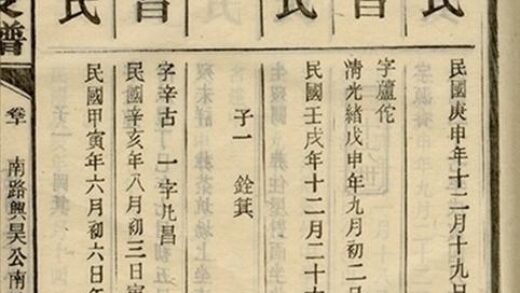 氏
民國庚申年十二月十九日
昌
字蘆佗
清光緒戊申年九月初二日
氏
民國壬戌年十二月二十
子一 銓箕
昌
字辛古 一字兆昌
民國辛亥年八月初三日寅
氏
民國甲寅年六月初六日
譜
卷十 南路興昊公南